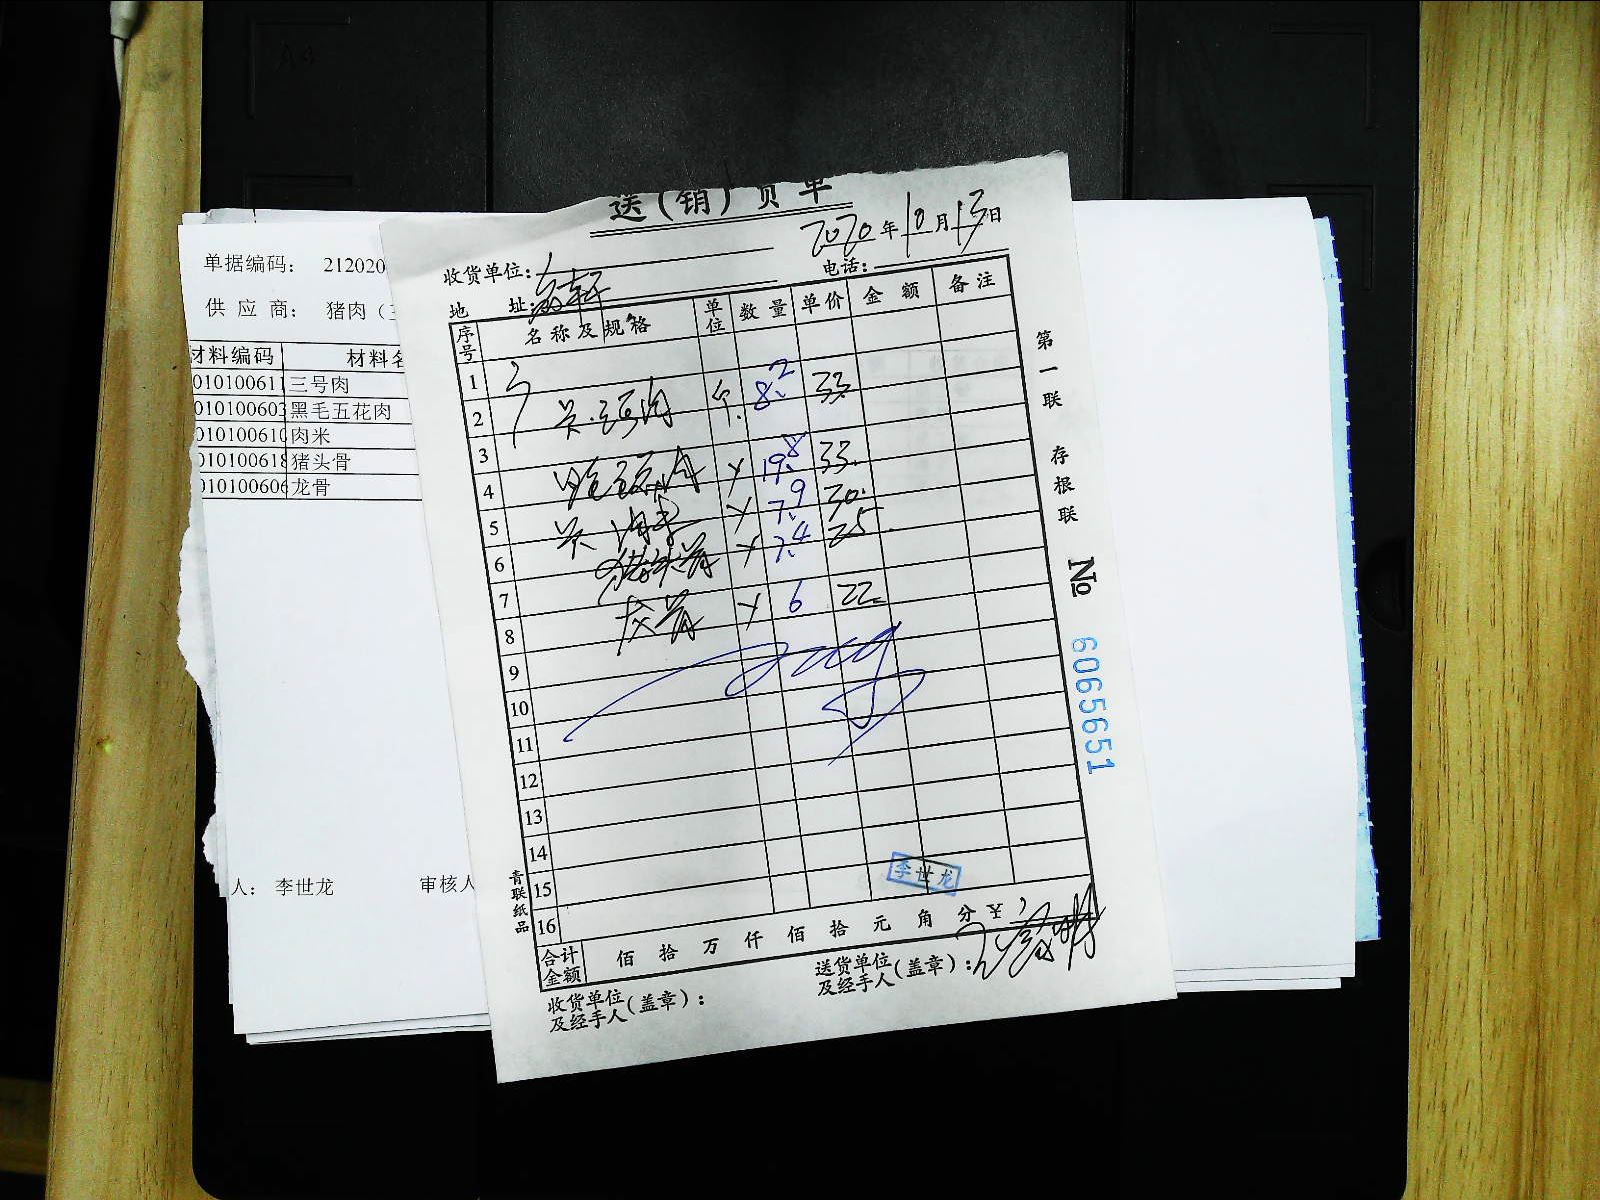 单据编码： 212020
供 应 商： 猪肉（三
材料编码 材料名
010100611 三号肉
010100603 黑毛五花肉
010100610 肉米
010100618 猪头骨
010100606 龙骨
人： 李世龙 审核人
送（销）货单
2020年10月13日
收货单位：
电话：
地 址：
序号 名称及规格 单位 数量 单价 金额 备注
1
2 8.2 33
3
4 19.8 33
5 7.9 30
6 猪头骨 7.4 25
7 龙骨 6 22
8
9
10
11
12
13
14
15 李世龙
16
合计金额 佰 拾 万 仟 佰 拾 元 角 分 ¥
收货单位及经手人（盖章）：
送货单位及经手人（盖章）：
青联纸品
第一联 存根联
№ 6065651